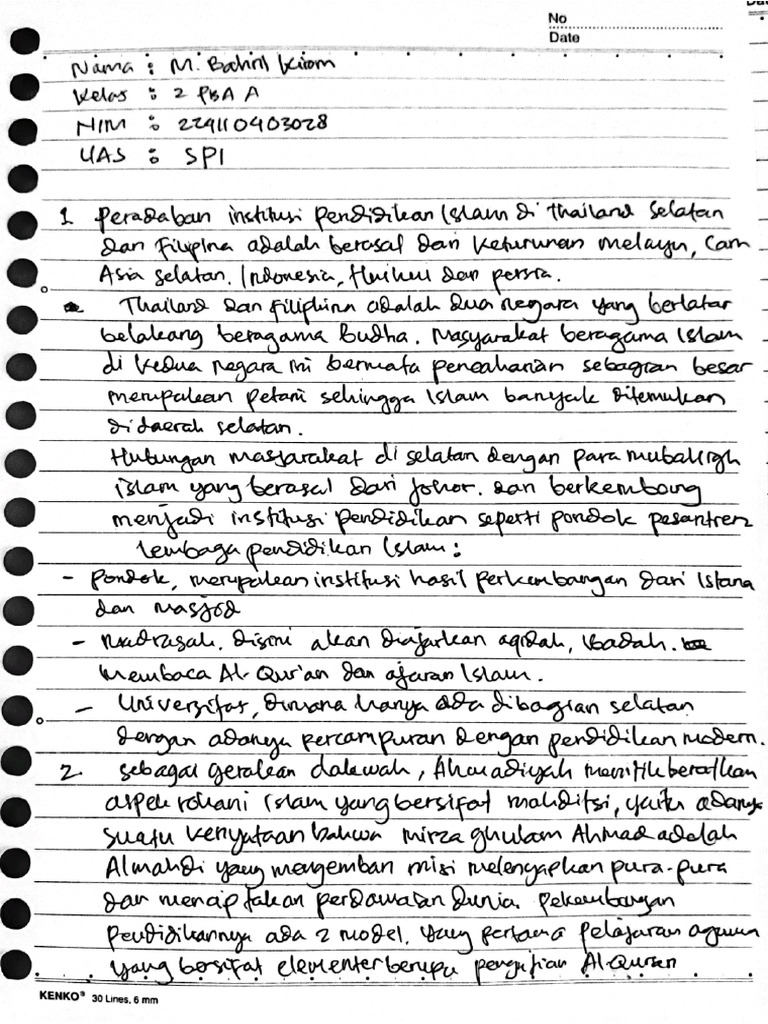 No
Date
Nama : M. Bahrul Kirom
Kelas : 2 PBA A
NIM : 224110403028
UAS : SPI
1 Peradaban institusi pendidikan Islam di Thailand Selatan
dan Filipina adalah berasal dari keturunan melayu, Cam
Asia selatan. Indonesia, dan persia.
Thailand dan Filiphina adalah dua negara yang berlatar
belakang beragama Budha. Masyarakat beragama Islam
di kedua negara ini bermata pencaharian sebagian besar
merupakan petani sehingga Islam banyak ditemukan
didaerah selatan.
Hubungan masyarakat di selatan dengan para mubaligh
islam yang berasal dari Johor. dan berkembang
menjadi institusi pendidikan seperti pondok pesantren
lembaga pendidikan Islam :
- Pondok, merupakan institusi hasil perkembangan dari Istana
dan masjid
- Madrasah. disini akan diajarkan aqidah, ibadah.
Membaca Al-Qur'an dan ajaran Islam.
- Universitas, dimana hanya ada dibagian selatan
dengan adanya percampuran dengan pendidikan modern.
2. sebagai gerakan dakwah, Ahmadiyah menitik beratkan
aspek rohani Islam yang bersifat mahditsi, yaitu adanya
suatu kenyataan bahwa mirza ghulam Ahmad adalah
Almahdi yang mengemban misi melenyapkan pura-pura
dan menciptakan perdamaian dunia. pekembangan
pendidikannya ada 2 model, yang pertama pelajaran agama
yang bersifat elementer berupa pengajian Al-Quran
KENKO® 30 Lines, 6 mm